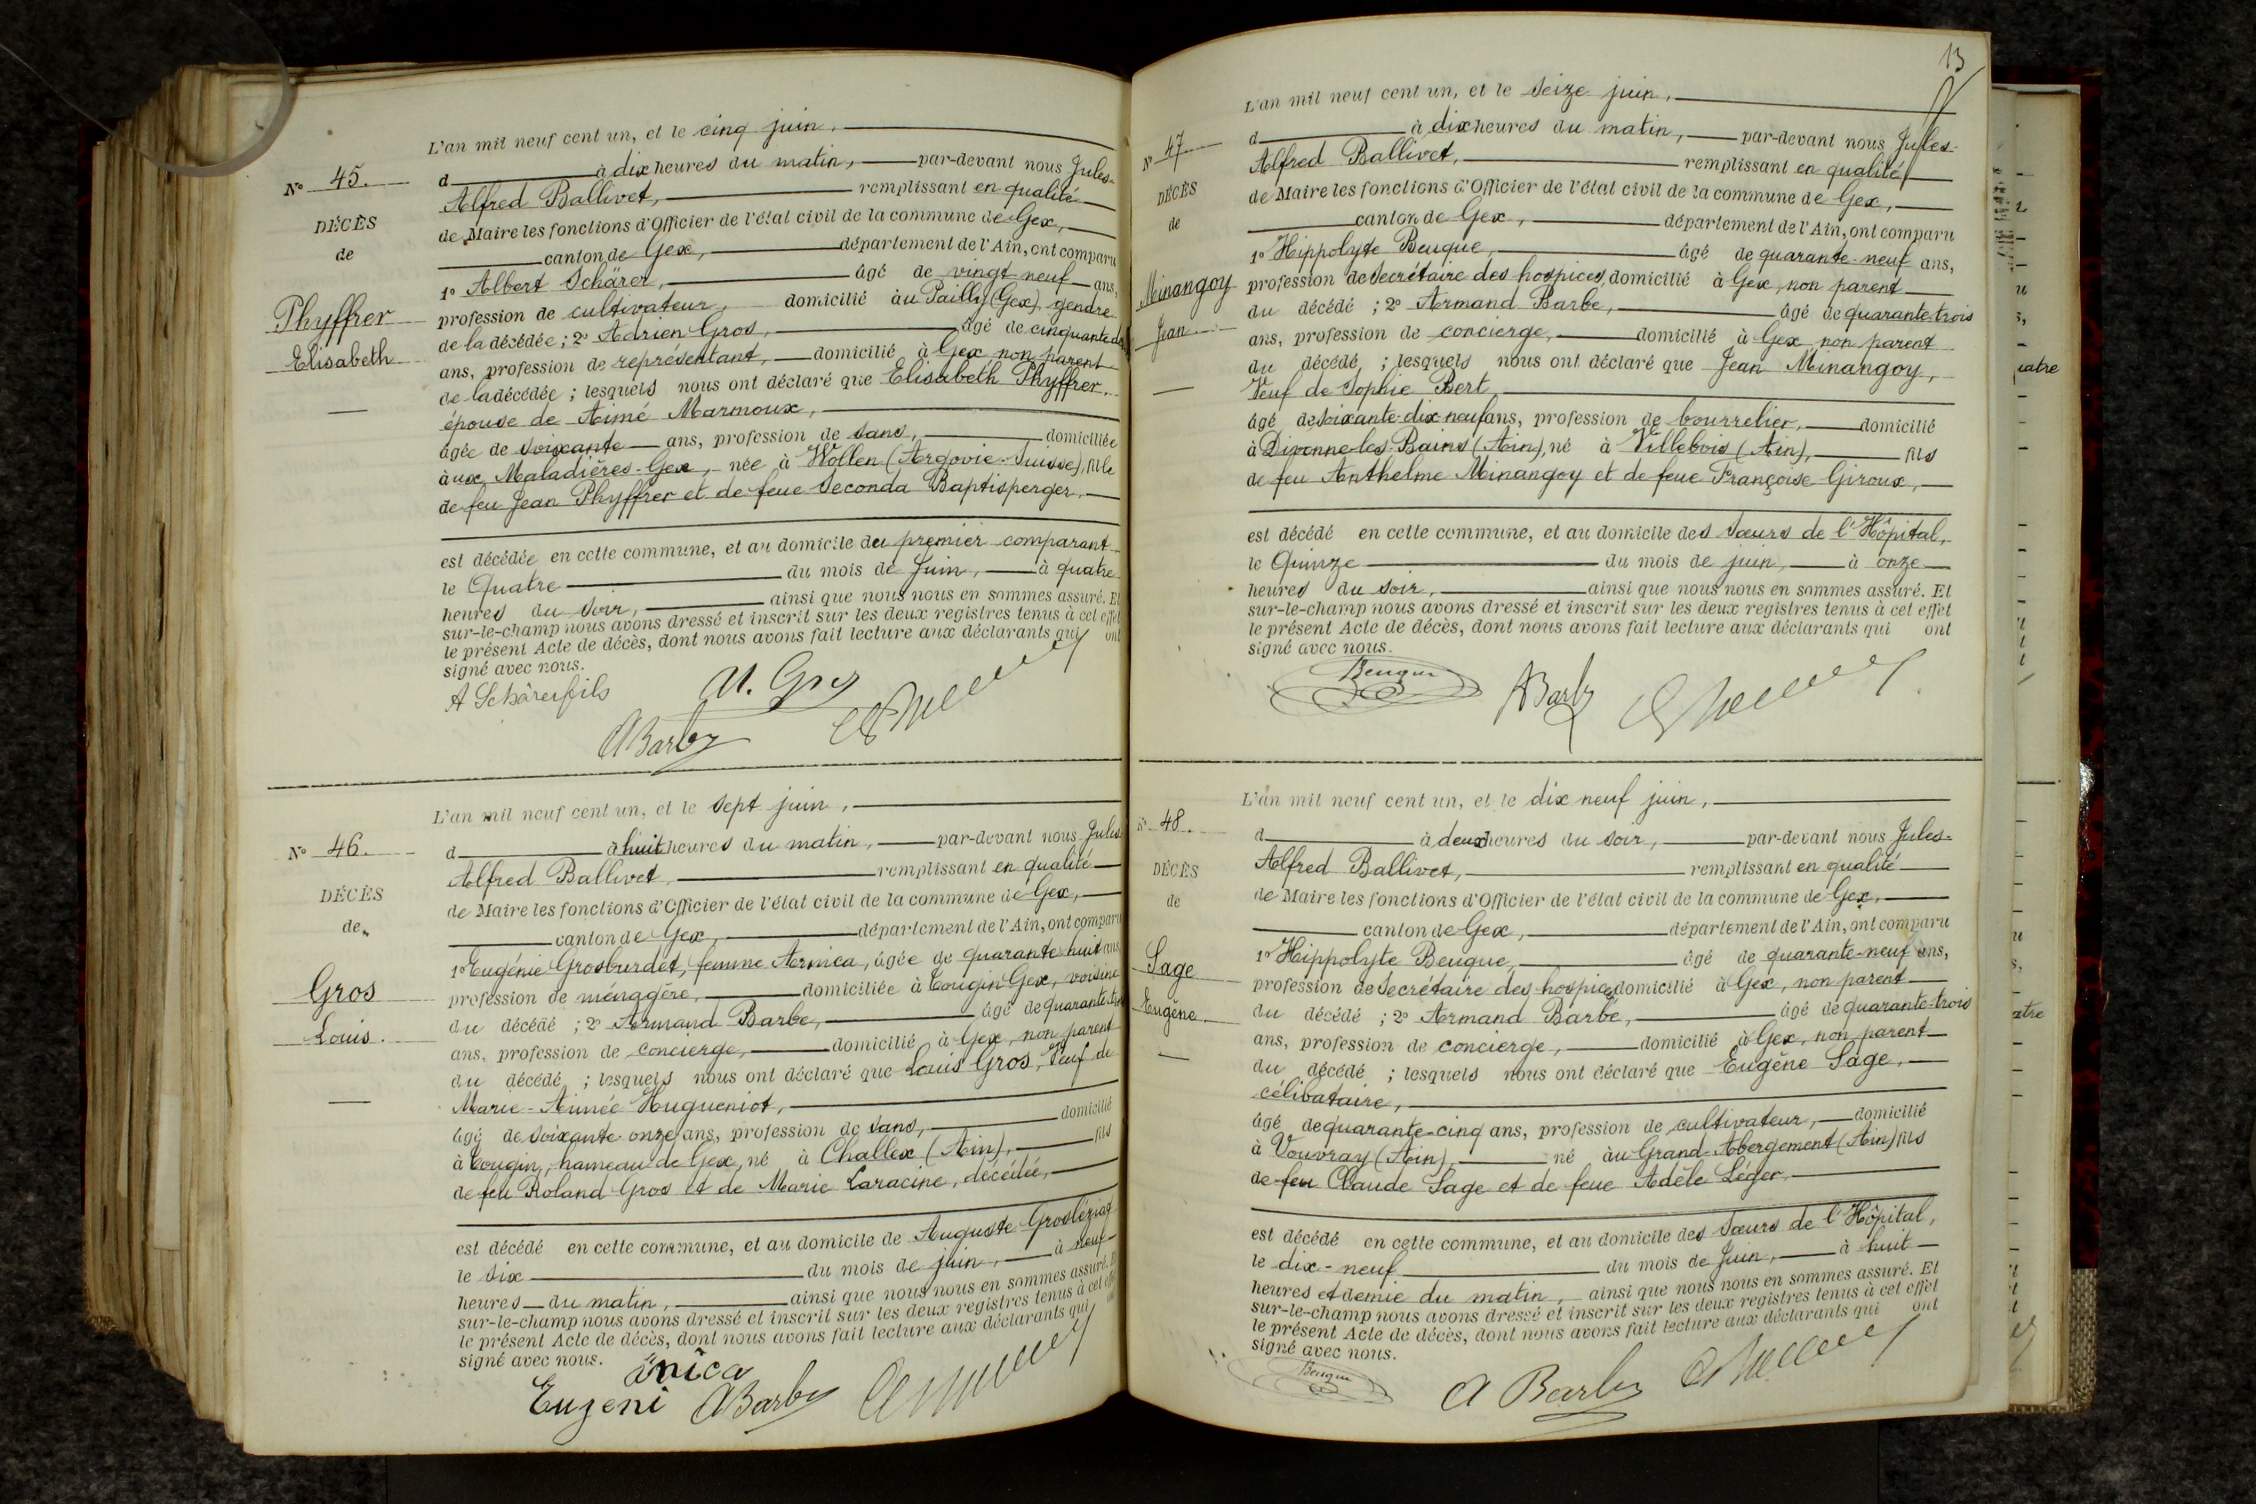 N° 45.
DÉCÈS
de
Phyffrer
Elisabeth
L'an mil neuf cent un, et le cinq juin,
d à dix heures du matin, par-devant nous Jules-
Alfred Ballivet, remplissant en qualité
de Maire les fonctions d'Officier de l'état civil de la commune de Gex,
canton de Gex, département de l'Ain, ont comparu
1° Albert Schärer, âgé de vingt neuf ans,
profession de cultivateur, domicilié au Pailly (Gex), gendre
de la décédée ; 2° Adrien Gros, âgé de cinquante
ans, profession de représentant, domicilié à Gex non parent
de la décédée ; lesquels nous ont déclaré que Elisabeth Phyffrer,
épouse de Aimé Marmoux,
âgée de soixante ans, profession de sans, domiciliée
aux Maladières-Gex, née à Wollen (Argovie-Suisse), fille
de feu Jean Phyffrer et de feue Seconda Baptisperger,
est décédée en cette commune, et au domicile du premier comparant
le Quatre du mois de Juin, à quatre
heures du soir, ainsi que nous nous en sommes assuré. Et
sur-le-champ nous avons dressé et inscrit sur les deux registres tenus à cet effet
le présent Acte de décès, dont nous avons fait lecture aux déclarants qui ont
signé avec nous.
A Schärer fils
A. Gros
ABarbe
N° 46.
DÉCÈS
de
Gros
Louis.
L'an mil neuf cent un, et le sept juin,
d à huit heures du matin, par-devant nous Jules-
Alfred Ballivet, remplissant en qualité
de Maire les fonctions d'Officier de l'état civil de la commune de Gex,
canton de Gex, département de l'Ain, ont comparu
1° Eugénie Grosburdet, femme Arnica, âgée de quarante huit ans,
profession de ménagère, domiciliée à Tougin Gex, voisine
du décédé ; 2° Armand Barbe, âgé de quarante-trois
ans, profession de concierge, domicilié à Gex, non parent
du décédé ; lesquels nous ont déclaré que Louis Gros, Veuf de
Marie-Aimée Hugueniot,
âgé de soixante onze ans, profession de sans, domicilié
à Tougin, hameau de Gex, né à Challex (Ain), fils
de feu Roland Gros et de Marie Caracine, décédée,
est décédé en cette commune, et au domicile de Auguste
le six du mois de juin, à neuf
heures du matin, ainsi que nous nous en sommes assuré. Et
sur-le-champ nous avons dressé et inscrit sur les deux registres tenus à cet effet
le présent Acte de décès, dont nous avons fait lecture aux déclarants qui ont
signé avec nous.
arnica
Eugeni ABarbe
13
N° 47
DÉCÈS
de
Minangoy
Jean
L'an mil neuf cent un, et le Seize juin,
d à dix heures du matin, par-devant nous Jules-
Alfred Ballivet, remplissant en qualité
de Maire les fonctions d'Officier de l'état civil de la commune de Gex,
canton de Gex, département de l'Ain, ont comparu
1° Hippolyte Beuque, âgé de quarante-neuf ans,
profession de Secrétaire des hospices, domicilié à Gex, non parent
du décédé ; 2° Armand Barbe, âgé de quarante-trois
ans, profession de concierge, domicilié à Gex non parent
du décédé ; lesquels nous ont déclaré que Jean Minangoy,
Veuf de Sophie Bert
âgé de soixante-dix-neuf ans, profession de bourrelier, domicilié
à Divonne-les-Bains (Ain), né à Villebois (Ain), fils
de feu Anthelme Minangoy et de feue Françoise Giroux,
est décédé en cette commune, et au domicile des Sœurs de l'Hôpital,
le Quinze du mois de juin, à onze
heures du soir, ainsi que nous nous en sommes assuré. Et
sur-le-champ nous avons dressé et inscrit sur les deux registres tenus à cet effet
le présent Acte de décès, dont nous avons fait lecture aux déclarants qui ont
signé avec nous.
Beuque ABarbe
N° 48.
DÉCÈS
de
Sage
Eugène
L'an mil neuf cent un, et le dix neuf juin,
d à deux heures du soir, par-devant nous Jules-
Alfred Ballivet, remplissant en qualité
de Maire les fonctions d'Officier de l'état civil de la commune de Gex,
canton de Gex, département de l'Ain, ont comparu
1° Hippolyte Beuque, âgé de quarante-neuf ans,
profession de Secrétaire des hospices domicilié à Gex, non parent
du décédé ; 2° Armand Barbe, âgé de quarante-trois
ans, profession de concierge, domicilié à Gex, non parent
du décédé ; lesquels nous ont déclaré que Eugène Sage,
célibataire,
âgé de quarante-cinq ans, profession de cultivateur, domicilié
à Vouvray (Ain), né au Grand-Abergement (Ain) fils
de feu Claude Sage et de feue Adèle Léger,
est décédé en cette commune, et au domicile des Sœurs de l'Hôpital,
le dix-neuf du mois de Juin, à huit
heures et demie du matin, ainsi que nous nous en sommes assuré. Et
sur-le-champ nous avons dressé et inscrit sur les deux registres tenus à cet effet
le présent Acte de décès, dont nous avons fait lecture aux déclarants qui ont
signé avec nous.
Beuque A Barbe